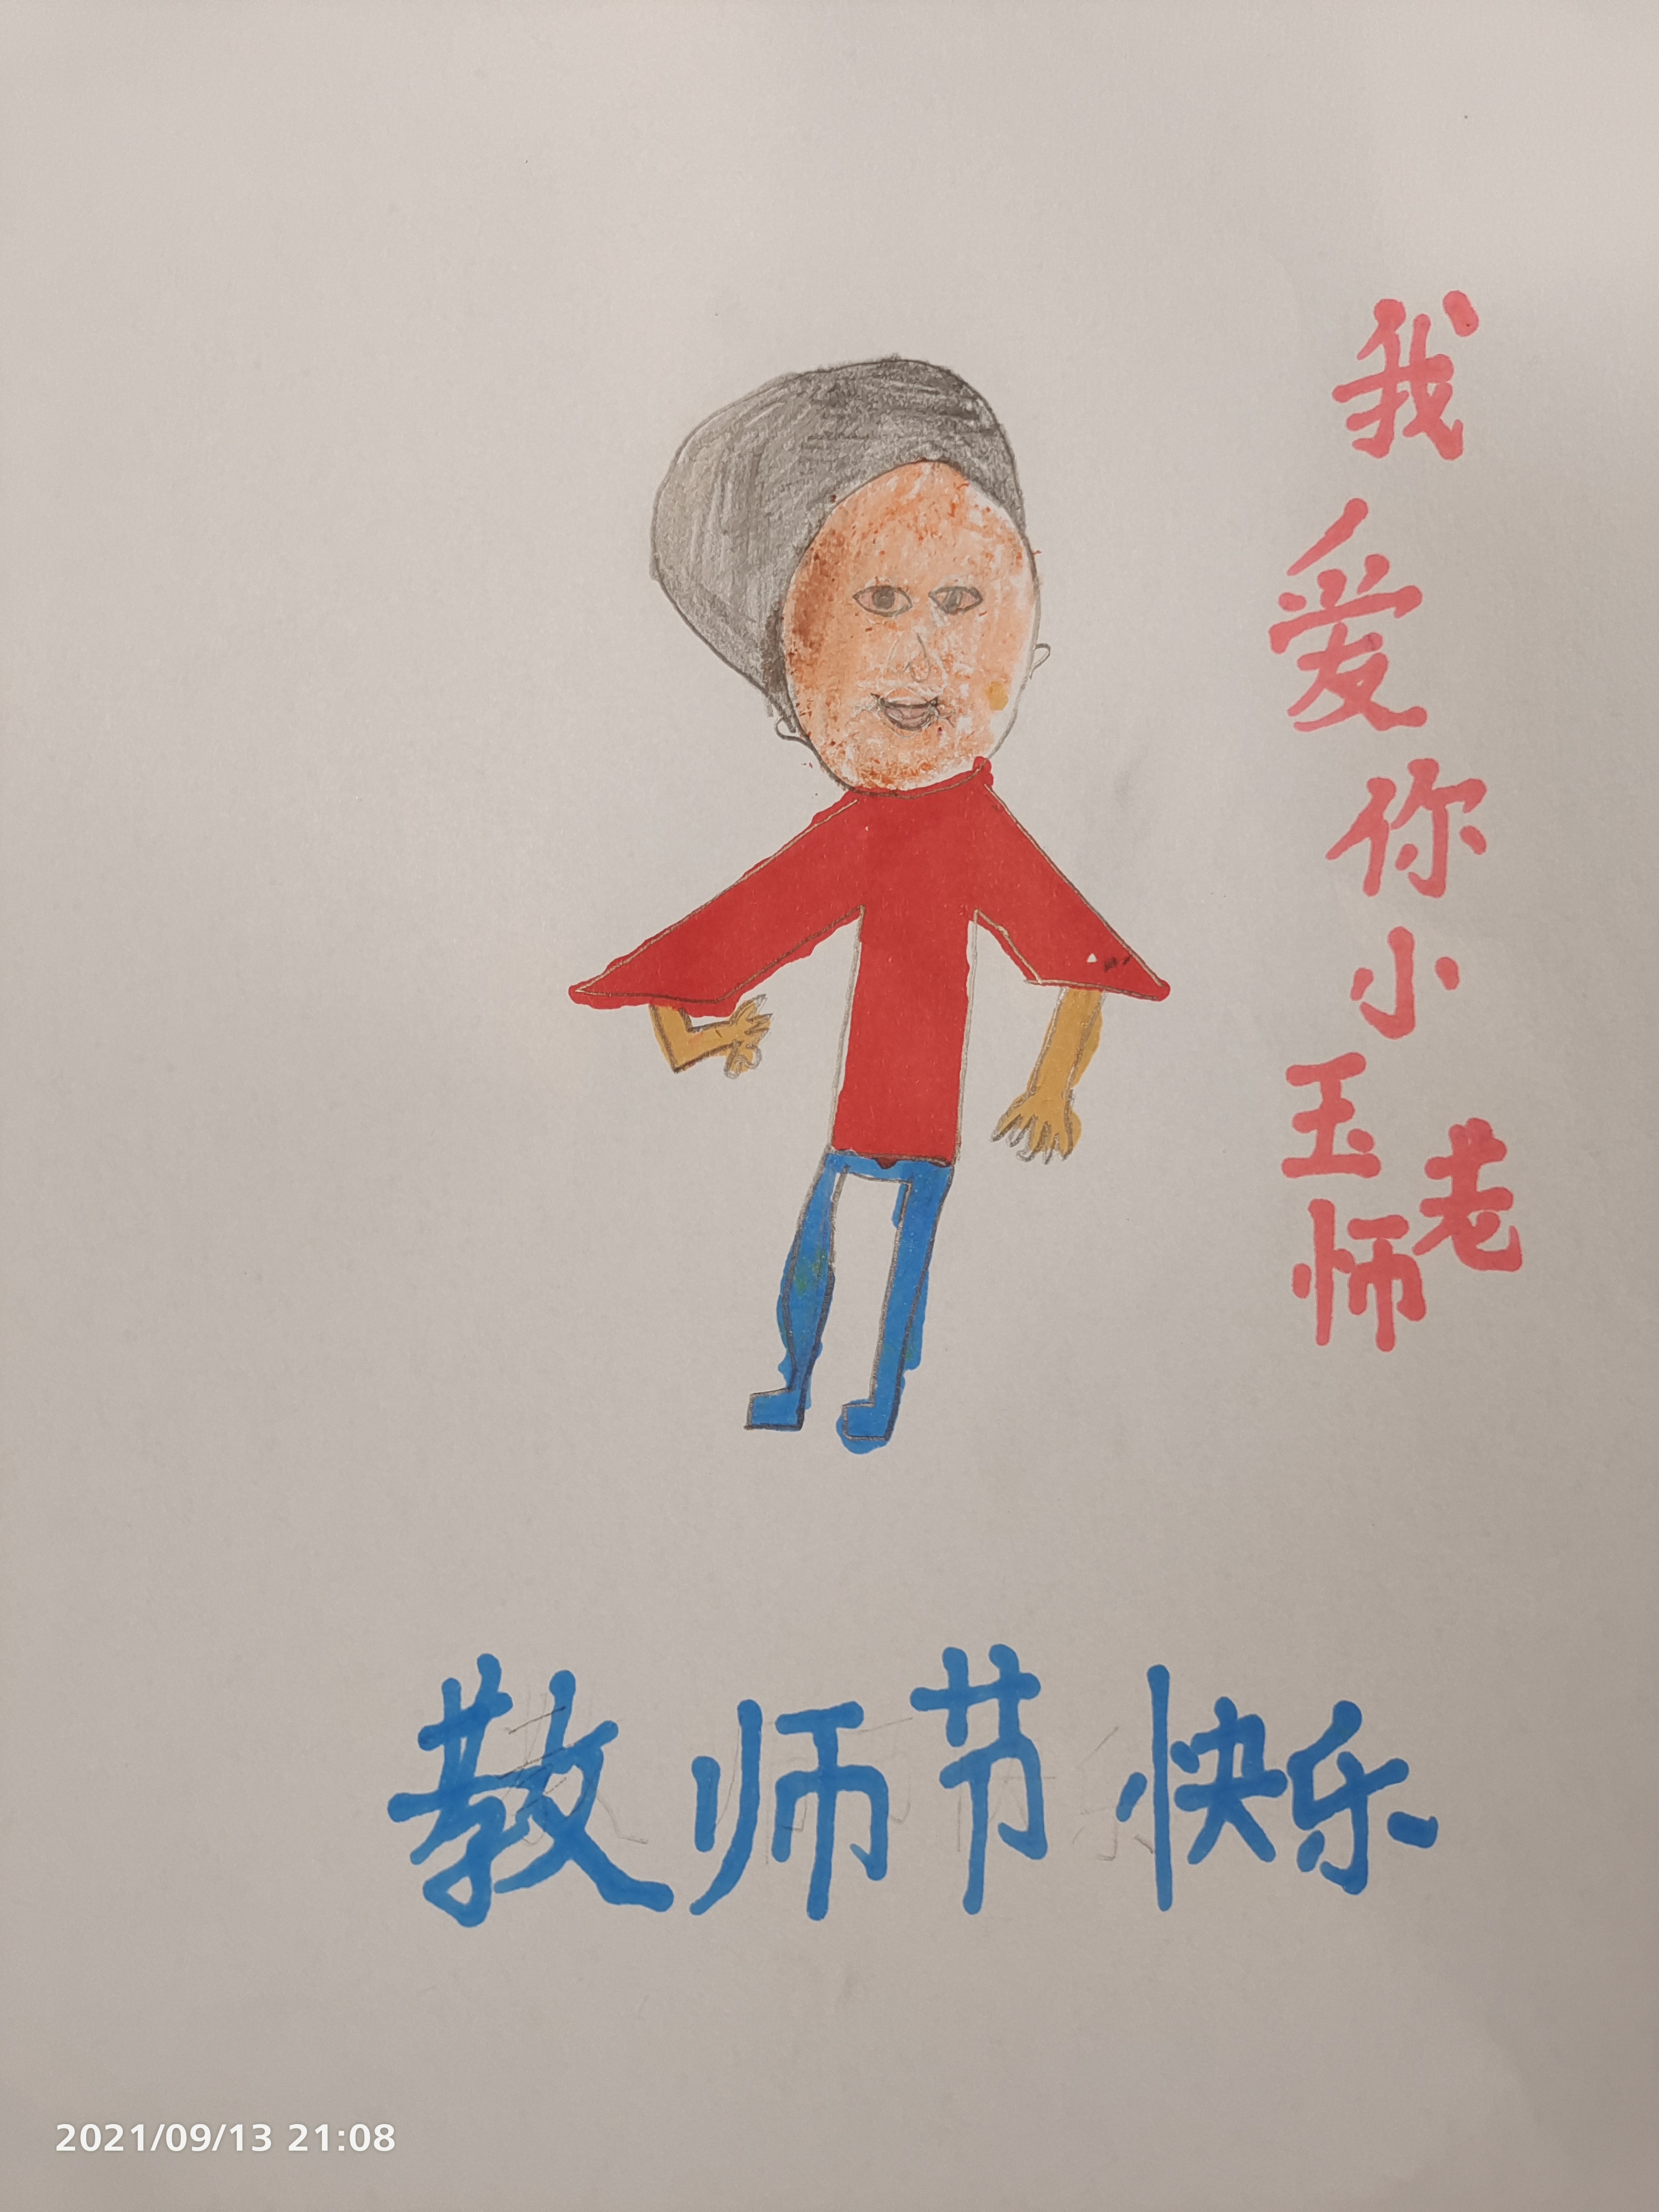 我爱你小玉老师
教师节快乐
2021/09/13 21:08